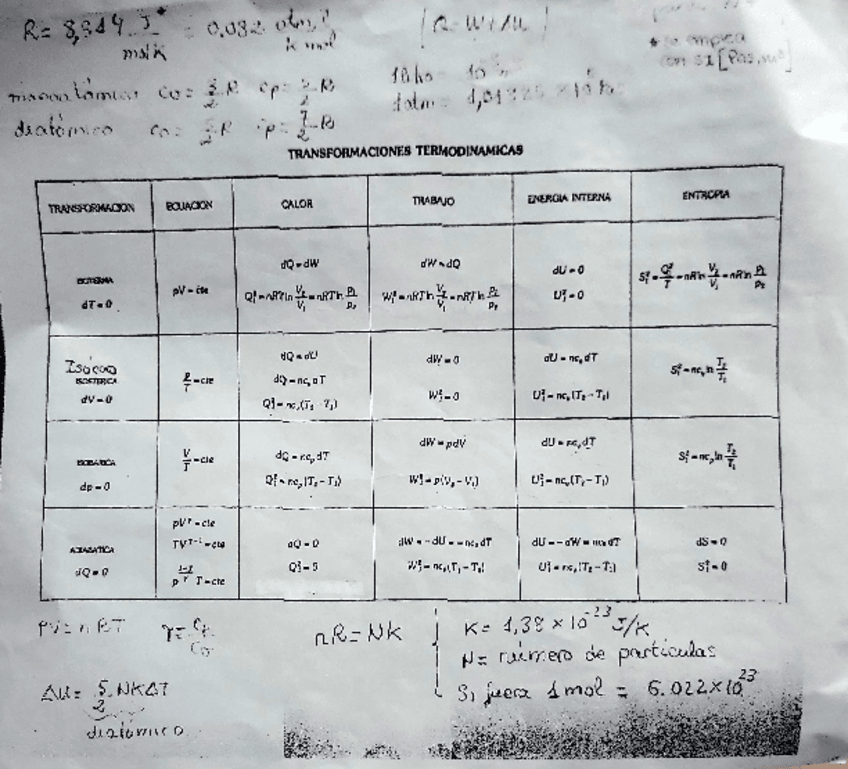 R = 8,314 J* / mol K = 0.082 atm l / K mol
[Q = W + ΔU]
* se emplea
con SI [Pas, m³]
monoatómico Cv = 3/2 R Cp = 5/2 R
diatómico Cv = 5/2 R Cp = 7/2 R
TRANSFORMACIONES TERMODINAMICAS
TRANSFORMACION ECUACION CALOR TRABAJO ENERGIA INTERNA ENTROPIA
ISOTERMA
dT = 0
pV = cte
dQ = dW
Q₁² = nRT ln V₂/V₁ = nRT ln p₁/p₂
dW = dQ
W₁² = nRT ln V₂/V₁ = nRT ln p₁/p₂
dU = 0
U₁² = 0
S₁² = Q₁²/T = nR ln V₂/V₁ = nR ln p₁/p₂
Isócora
ISOSTERICA
dV = 0
p/T = cte
dQ = dU
dQ = ncᵥdT
Q₁² = ncᵥ(T₂ - T₁)
dW = 0
W₁² = 0
dU = ncᵥdT
U₁² = ncᵥ(T₂ - T₁)
S₁² = ncᵥ ln T₂/T₁
ISOBARICA
dp = 0
V/T = cte
dQ = ncₚdT
Q₁² = ncₚ(T₂ - T₁)
dW = pdV
W₁² = p(V₂ - V₁)
dU = ncᵥdT
U₁² = ncᵥ(T₂ - T₁)
S₁² = ncₚ ln T₂/T₁
ADIABATICA
dQ = 0
pV^γ = cte
TV^γ-1 = cte
p^(1-γ)/γ T = cte
dQ = 0
dW = - dU = - ncᵥdT
W₁² = ncᵥ(T₁ - T₂)
dU = - dW = ncᵥdT
U₁² = ncᵥ(T₂ - T₁)
dS = 0
S₁² = 0
PV = nRT γ = Cp/Cv
nR = NK
K = 1,38 × 10⁻²³ J/K
N = número de partículas
Si fuera 1 mol = 6.022 × 10²³
ΔU = 5/2 NKΔT
diatómico